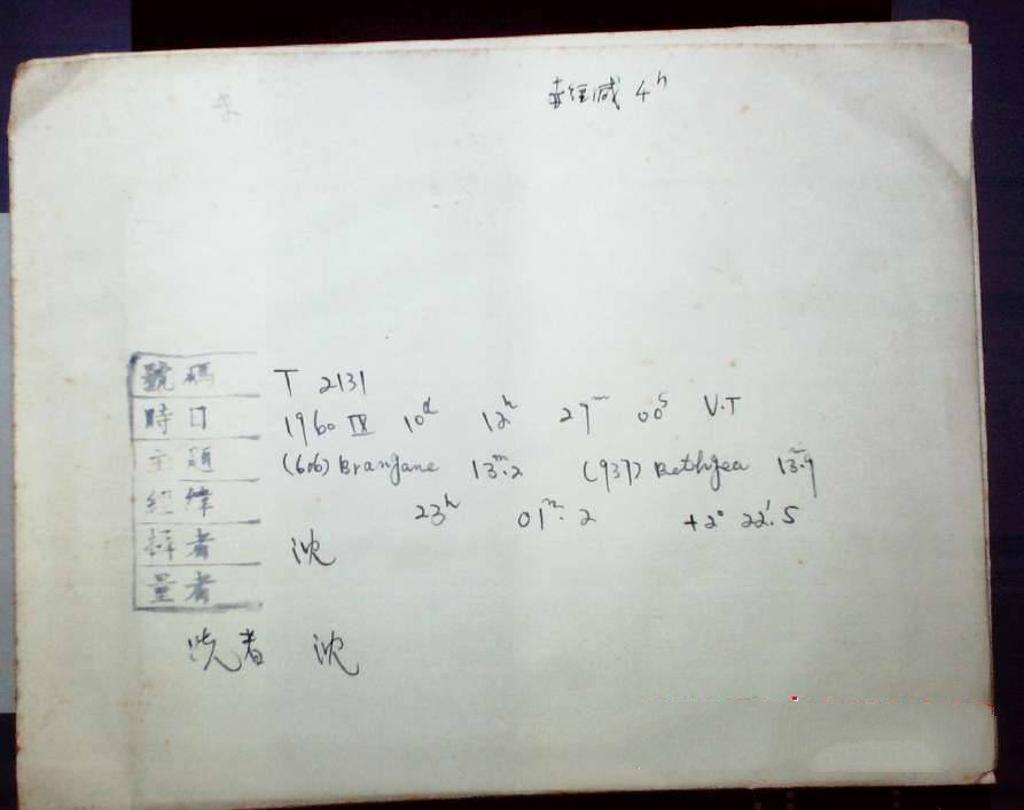 赤經减 4ʰ
號碼 T 2131
時日 1960 IX 10ᵈ 12ʰ 27ᵐ 00ˢ V.T
主題 (606) Brangane 13ᵐ.2 (937) Bethgea 13ᵐ.9
經緯 23ʰ 01ᵐ.2 +2° 22'.5
者 沈
量者
洗者 沈